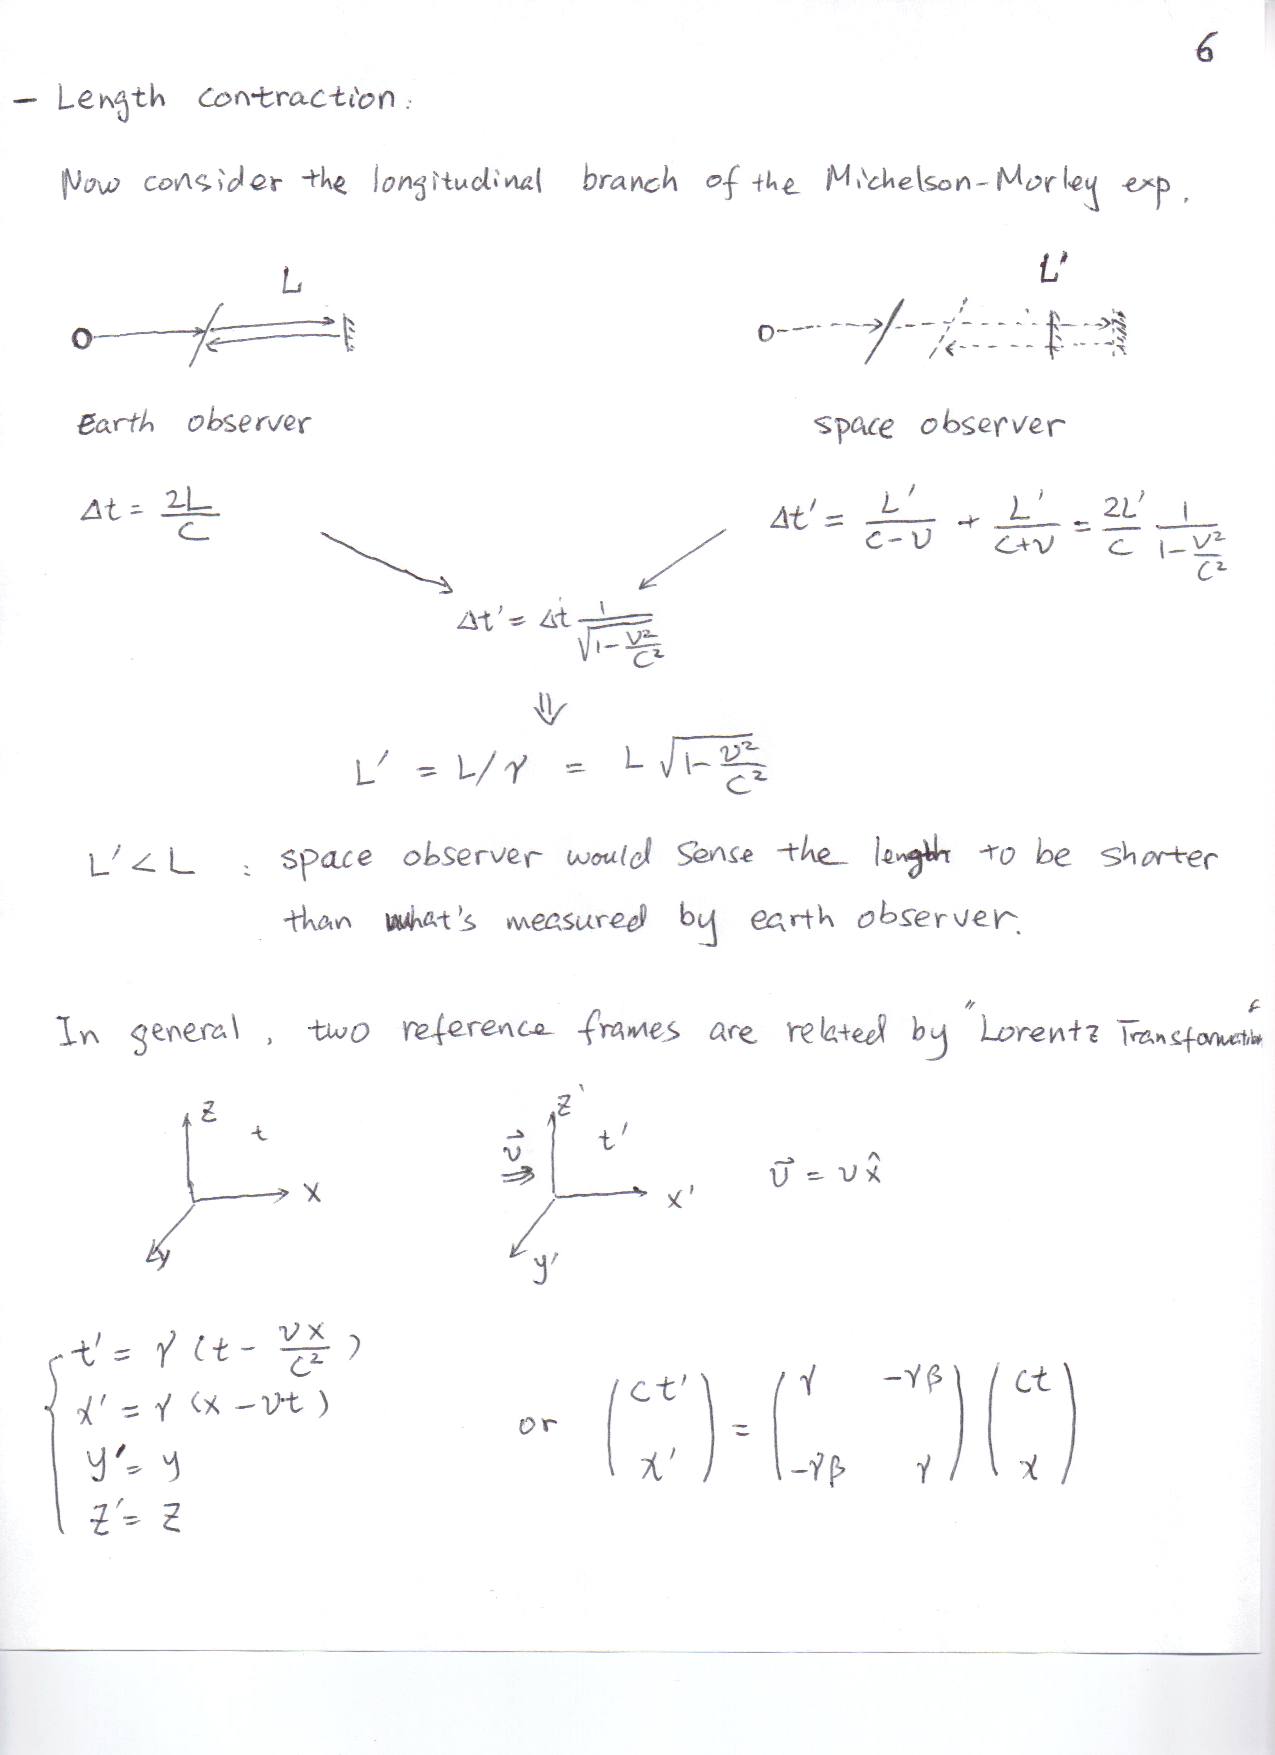 6
- Length contraction:
Now consider the longitudinal branch of the Michelson-Morley exp.
L
L'
Earth observer
space observer
Δt = 2L/C
Δt' = L'/(C-v) + L'/(C+v) = 2L'/C 1/(1-v²/C²)
Δt' = Δt 1/√(1-v²/C²)
⇓
L' = L/γ = L √(1-v²/C²)
L' < L : space observer would sense the length to be shorter
than what's measured by earth observer.
In general, two reference frames are related by "Lorentz Transformation
z t x y
z' t' x' y' v⃗ ⇒
v⃗ = v x̂
t' = γ (t - vx/C²)
x' = γ (x - vt)
y' = y
z' = z
or (ct' x') = (γ -γβ -γβ γ) (ct x)